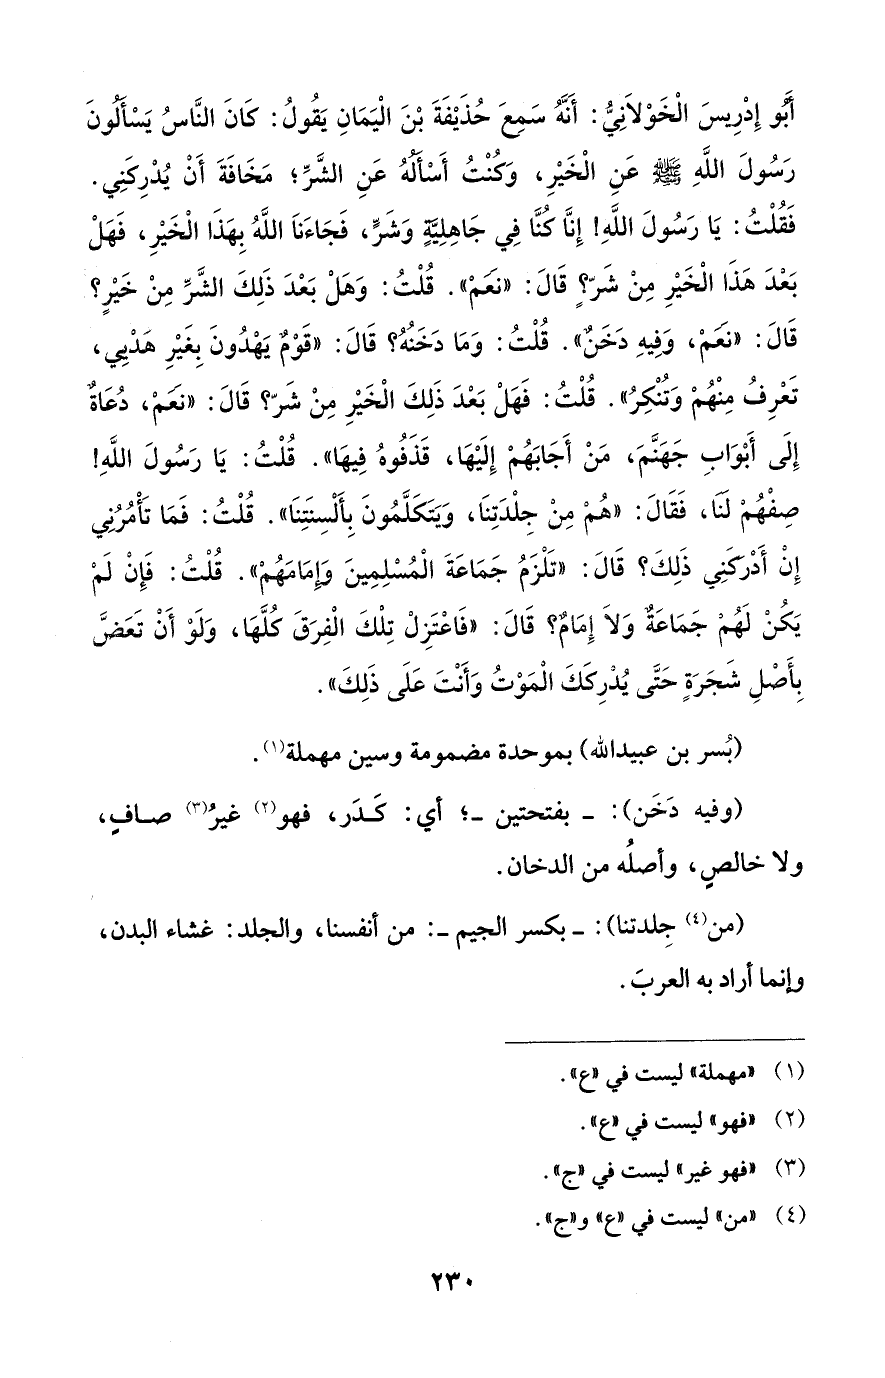 أَبُو إِدْرِيسَ الْخَوْلاَنِيُّ: أَنَّهُ سَمِعَ حُذَيْفَةَ بْنَ الْيَمَانِ يَقُولُ: كَانَ النَّاسُ يَسْأَلُونَ
رَسُولَ اللَّهِ ﷺ عَنِ الْخَيْرِ، وَكُنْتُ أَسْأَلُهُ عَنِ الشَّرِّ؛ مَخَافَةَ أَنْ يُدْرِكَنِي.
فَقُلْتُ: يَا رَسُولَ اللَّهِ! إِنَّا كُنَّا فِي جَاهِلِيَّةٍ وَشَرٍّ، فَجَاءَنَا اللَّهُ بِهَذَا الْخَيْرِ، فَهَلْ
بَعْدَ هَذَا الْخَيْرِ مِنْ شَرّ؟ قَالَ: «نَعَمْ». قُلْتُ: وَهَلْ بَعْدَ ذَلِكَ الشَّرِّ مِنْ خَيْرٍ؟
قَالَ: «نَعَمْ، وَفِيهِ دَخَنٌ». قُلْتُ: وَمَا دَخَنُهُ؟ قَالَ: «قَوْمٌ يَهْدُونَ بِغَيْرِ هَدْيِي،
تَعْرِفُ مِنْهُمْ وَتُنْكِرُ». قُلْتُ: فَهَلْ بَعْدَ ذَلِكَ الْخَيْرِ مِنْ شَرّ؟ قَالَ: «نَعَمْ، دُعَاةٌ
إِلَى أَبْوَابِ جَهَنَّمَ، مَنْ أَجَابَهُمْ إِلَيْهَا، قَذَفُوهُ فِيهَا». قُلْتُ: يَا رَسُولَ اللَّهِ!
صِفْهُمْ لَنَا، فَقَالَ: «هُمْ مِنْ جِلْدَتِنَا، وَيَتَكَلَّمُونَ بِأَلْسِنَتِنَا». قُلْتُ: فَمَا تَأْمُرُنِي
إِنْ أَدْرَكَنِي ذَلِكَ؟ قَالَ: «تَلْزَمُ جَمَاعَةَ الْمُسْلِمِينَ وَإِمَامَهُمْ». قُلْتُ: فَإِنْ لَمْ
يَكُنْ لَهُمْ جَمَاعَةٌ وَلاَ إِمَامٌ؟ قَالَ: «فَاعْتَزِلْ تِلْكَ الْفِرَقَ كُلَّهَا، وَلَوْ أَنْ تَعَضَّ
بِأَصْلِ شَجَرَةٍ حَتَّى يُدْرِكَكَ الْمَوْتُ وَأَنْتَ عَلَى ذَلِكَ».
(بُسر بن عبيدالله) بموحدة مضمومة وسين مهملة(١).
(وفيه دَخَن): ـ بفتحتين ـ؛ أي: كَدَر، فهو(٢) غيرُ(٣) صافٍ،
ولا خالصٍ، وأصلُه من الدخان.
(من(٤) جِلدتنا): ـ بكسر الجيم ـ: من أنفسنا، والجلد: غشاء البدن،
وإنما أراد به العربَ.
(١) «مهملة» ليست في «ع».
(٢) «فهو» ليست في «ع».
(٣) «فهو غير» ليست في «ج».
(٤) «من» ليست في «ع» و«ج».
٢٣٠